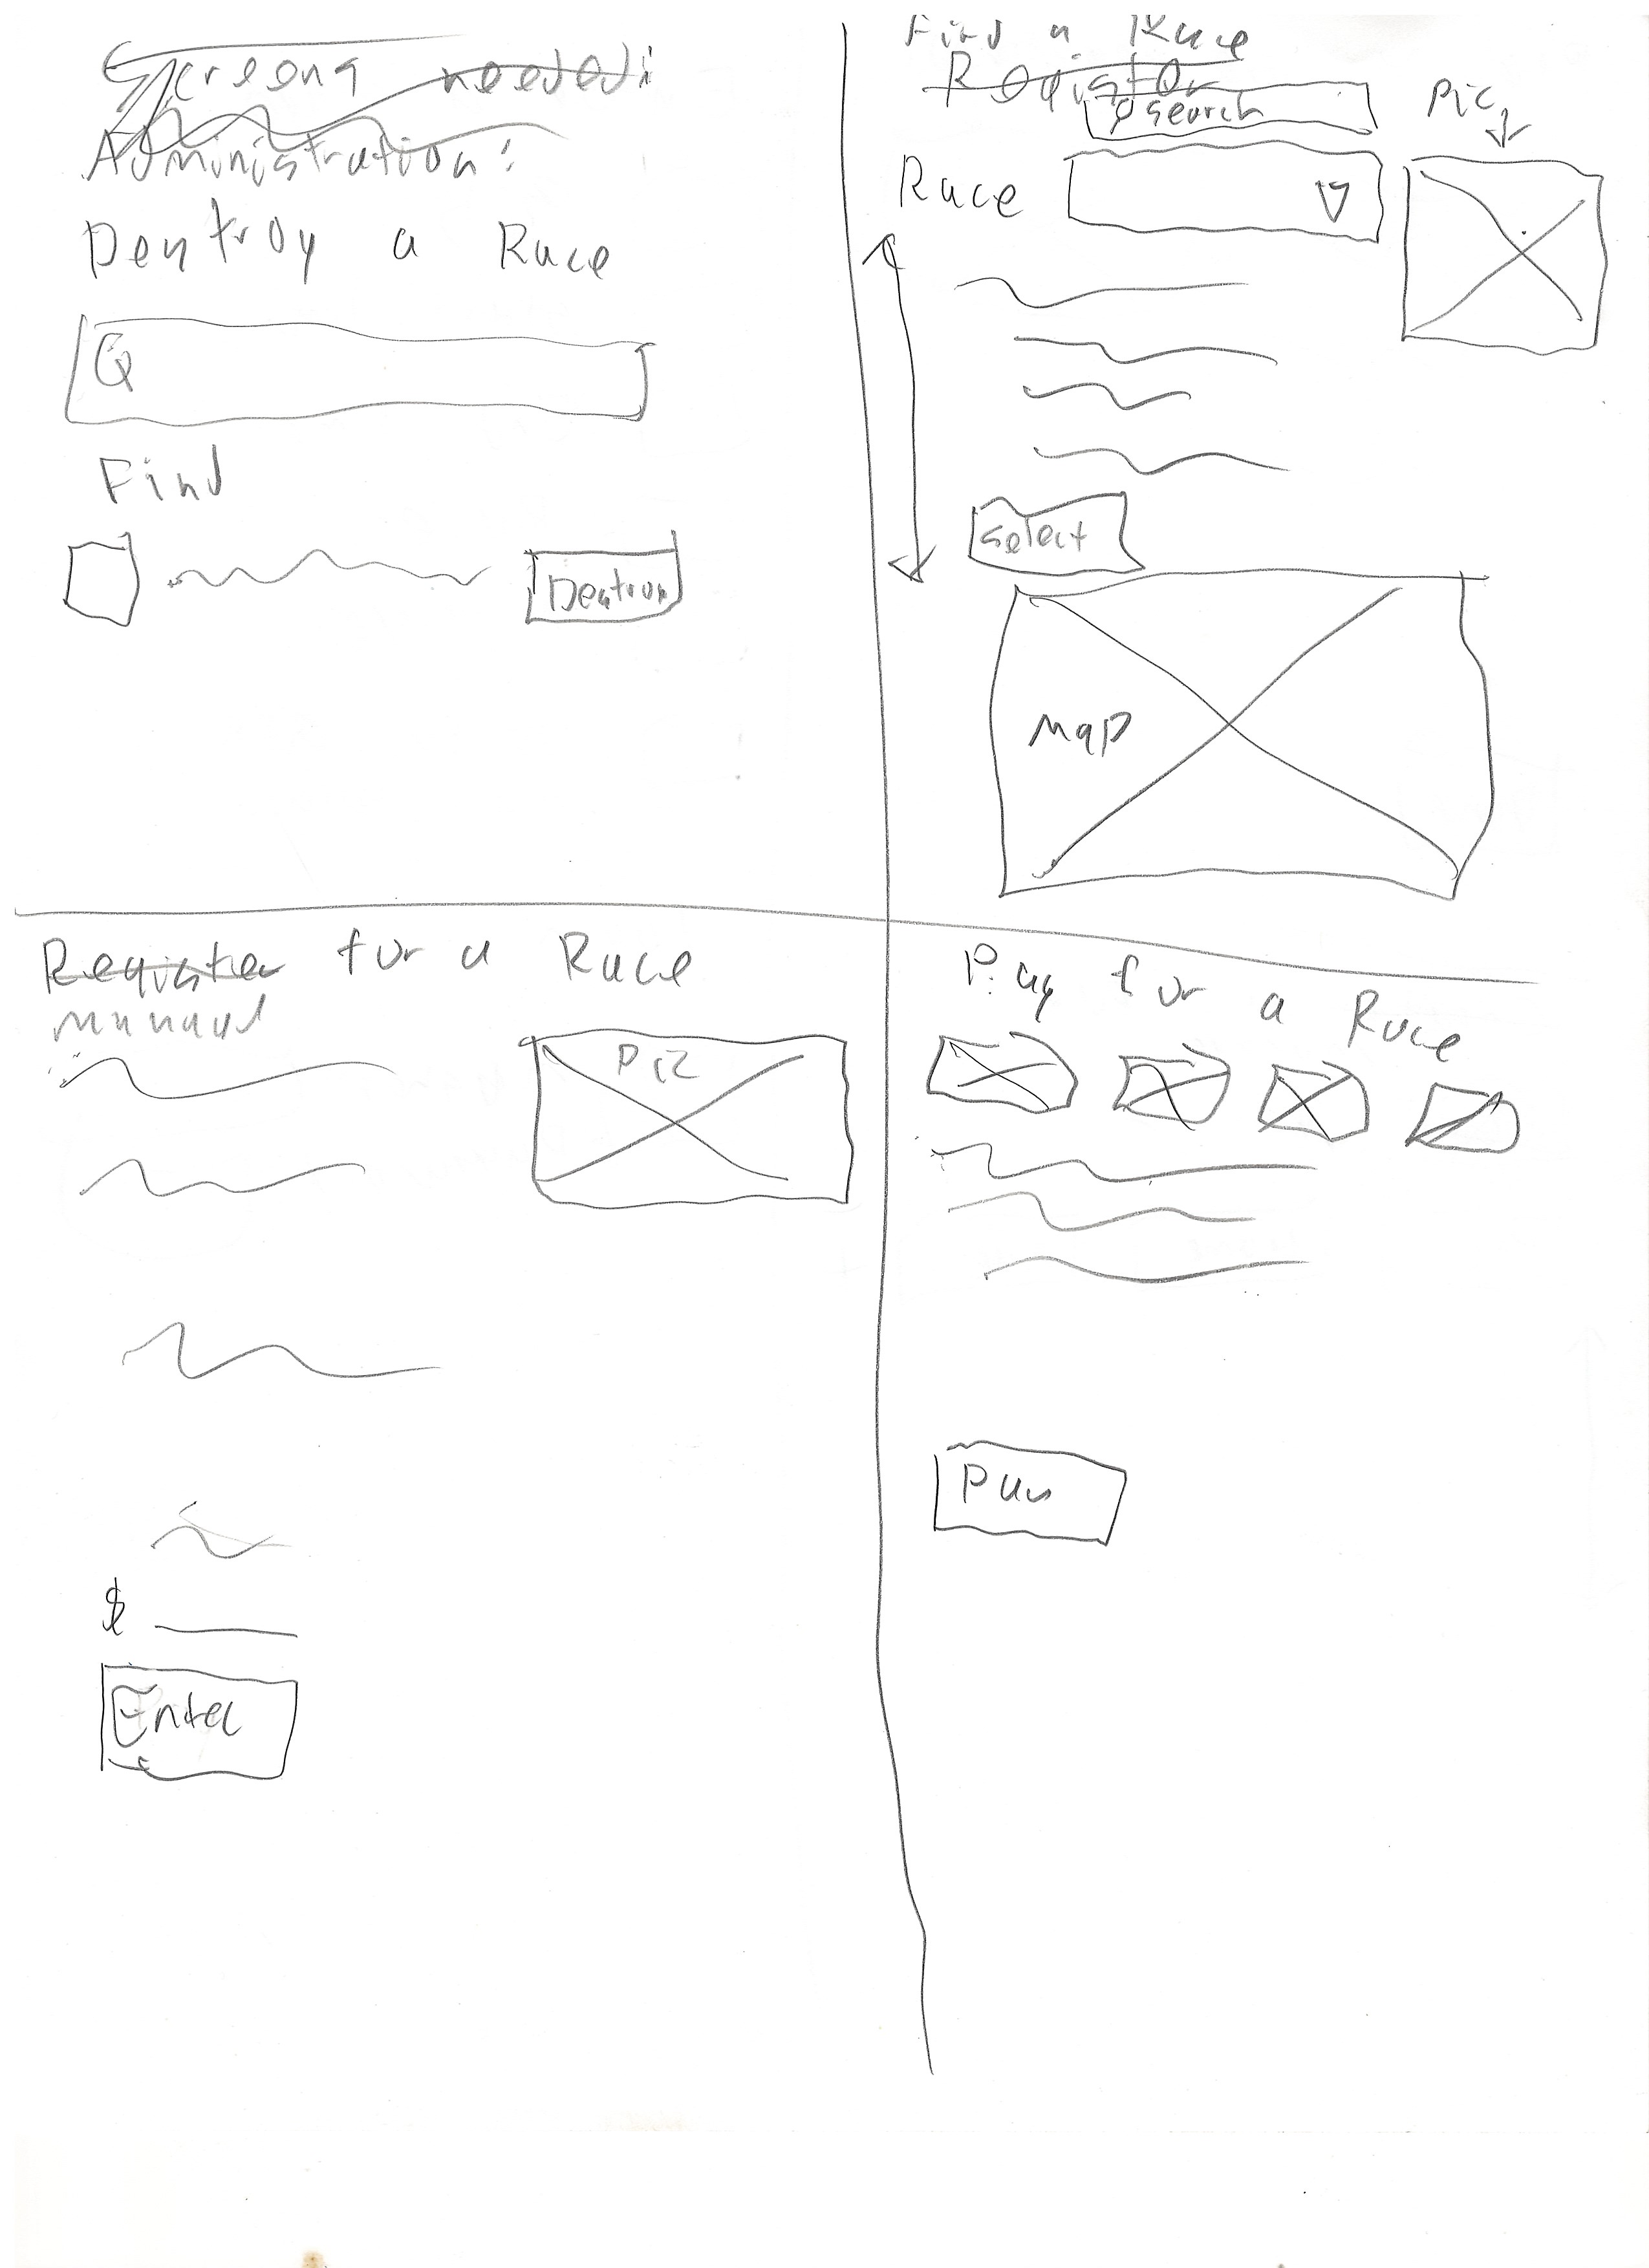 Screens needed:
Administration:
Destroy a Race
Find
Destroy
Find a Race
Register
Search
Pic
Race
Select
Map
Register for a Race
Pic
$
Enter
Pay for a Race
Pay